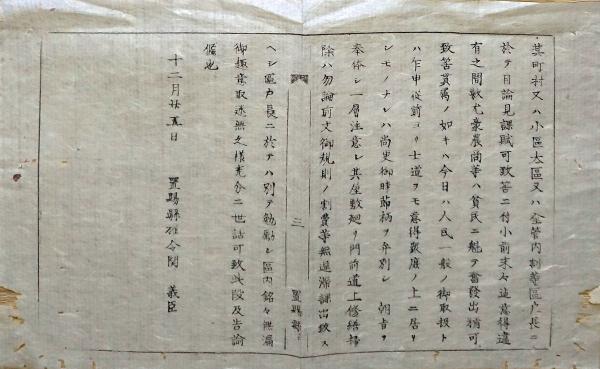 其町村又ハ小區大區又ハ全管内割等區戸長ニ
於テ目論見課賦可致筈ニ付小前末々迄意得違
有之間敷尤豪農商等ハ貧民ニ魁テ奮發出精可
致筈貫属ノ如キハ今日ハ人民一般ノ御取扱ト
ハ乍申從前ヨリ士道ヲモ意得罷底ノ上ニ居リ
シモノナレハ尚更御時節柄ヲ弁別シ 朝旨ヲ
奉体シ一層注意シ其坐敷廻リ門前道上修繕掃
除ハ勿論前文御規則ノ割費等無遅滞課出致ス
三
置賜縣
ヘシ區戸長ニ於テハ別テ勉勵シ區内銘々無漏
御趣意取違無之様充分ニ世話可致此段及告諭
候也
十二月廿五日 置賜縣権令関 義臣